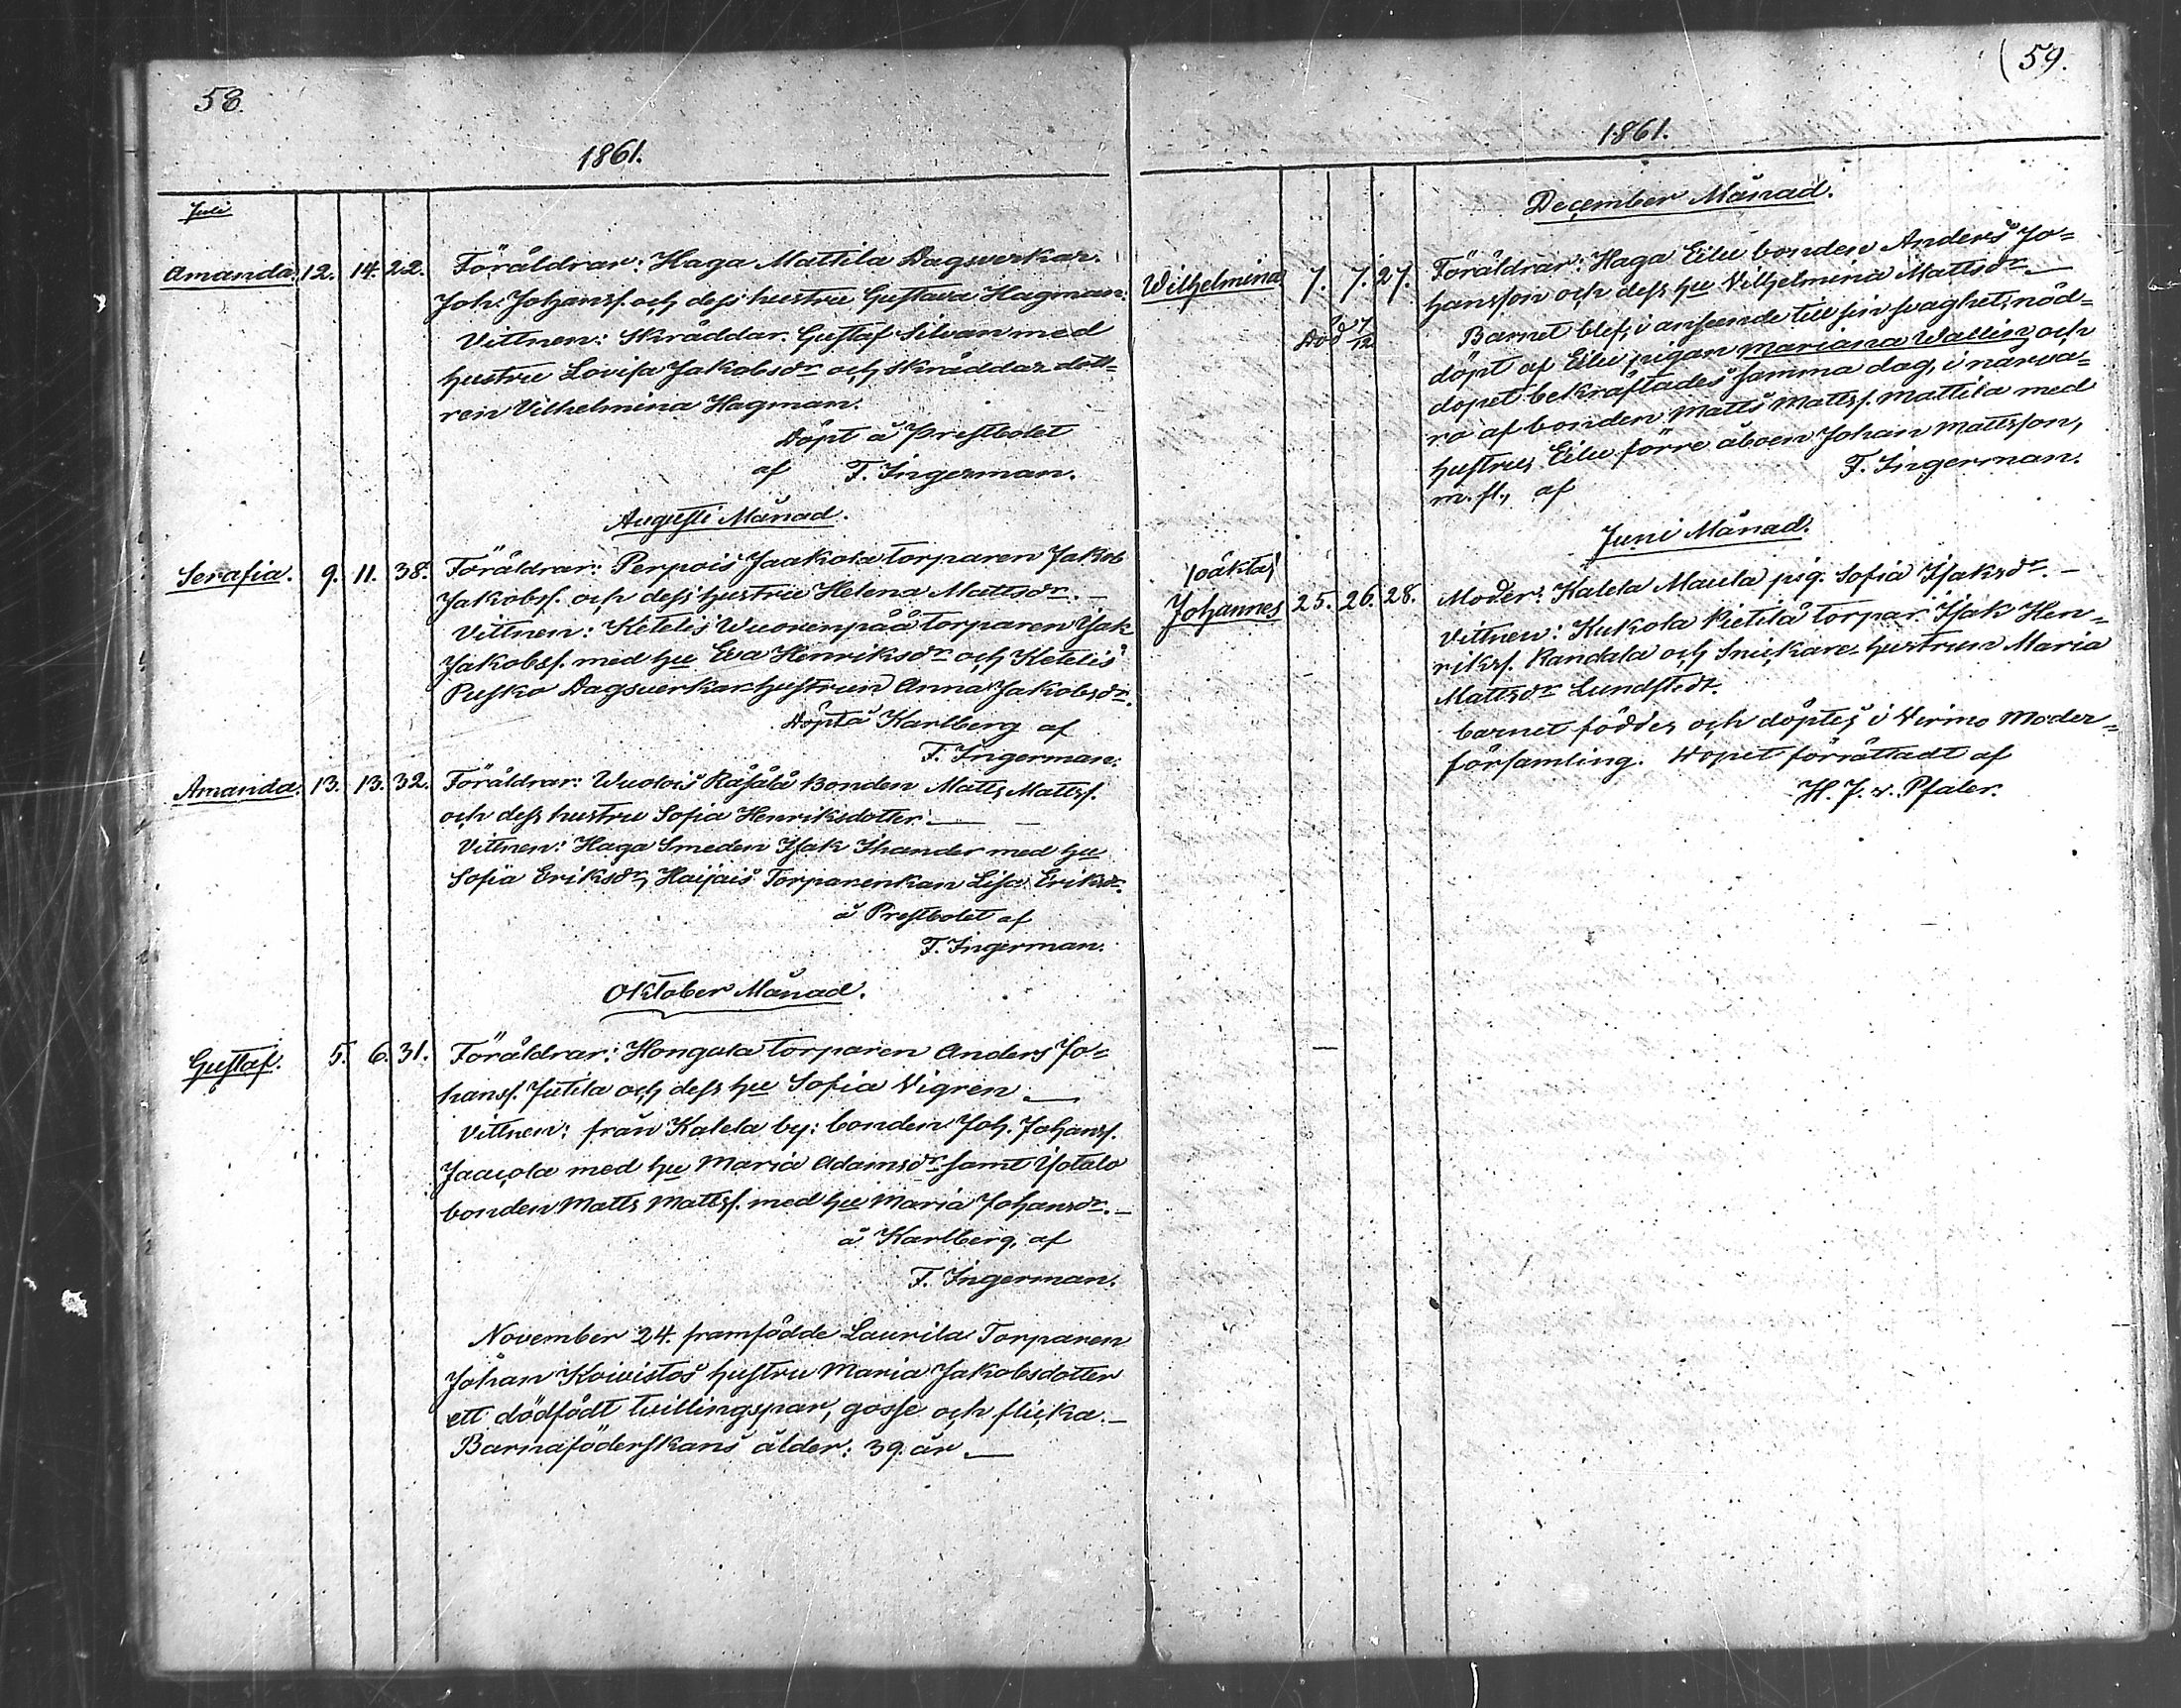 58.
1861.
Juli
Amanda. 12. 14. 22. Föräldrar: Haga Mattila Dagsverkar.
Joh. Johanss. och dess hustru Gustava Hagman.
Vittnen: Skräddar. Gustaf Silvan med
hustru Lovisa Jakobsdr och skräddaredott=
ren Vilhelmina Hagman.
Döpt å Prestbolet
af F. Ingerman.
Augusti Månad.
Serafia. 9. 11. 38. Föräldrar: Perpois Jaakola torparen Jakob
Jakobss. och dess hustru Helena Mattsdr. —
Vittnen: Ketelis Wuorenpää torparen Isak
Jakobss. med hu Eva Henriksdr och Ketelis
Pusko Dagsverkarhustrun Anna Jakobsdr.
Döpt å Karlberg af
F. Ingerman.
Amanda. 13. 13. 32. Föräldrar: Wuolois Räsälä Bonden Matts Mattss.
och dess hustru Sofia Henriksdotter. —
Vittnen: Haga Smeden Isak Ihander med hu
Sofia Eriksdr, Haijais Torparenkan Lisa Eriksdr.
å Prestbolet af
F. Ingerman.
Oktober Månad.
Gustaf. 5. 6. 31. Föräldrar: Hongula torparen Anders Jo=
hanss. Jutila och dess hu Sofia Vigren —
Vittnen: från Kalela by: bonden Joh. Johanss.
Jaacola med hu Maria Adamsdr samt Isotalo
bonden Matts Mattss. med hu Maria Johansdr. —
å Karlberg, af
F. Ingerman.
November 24. framfödde Laurila Torparen
Johan Koivistos hustru Maria Jakobsdotter
ett dödfödt tvillingspar, gosse och flicka. —
Barnaföderskans ålder: 39. år. —
59.
1861.
December Månad.
Wilhelmina 7. 7. 27. Föräldrar: Haga Eilu bonden Anders Jo=
hansson och dess hu Vilhelmina Mattsdr —
Död 7/12 Barnet blef, i anseende till sin svaghet, nöd=
döpt af Eilu pigan Mariana Wallin och
dopet bekräftades samma dag, i närva=
ro af bonden Matts Mattss. Mattila med
hustru, Eilu förre åboen Johan Mattsson,
m. fl., af F. Ingerman.
Juni Månad.
/oäkta/
Johannes 25. 26. 28. Moder: Kalela Maula pig. Sofia Isaksdr. —
Vittnen: Kukola Pietilä torpar. Isak Hen=
rikss. Randala och Snickare-hustrun Maria
Mattsdr Lundstedt.
barnet föddes och döptes i Virmo Moder=
församling. Dopet förrättadt af
H. J. v. Pfaler.